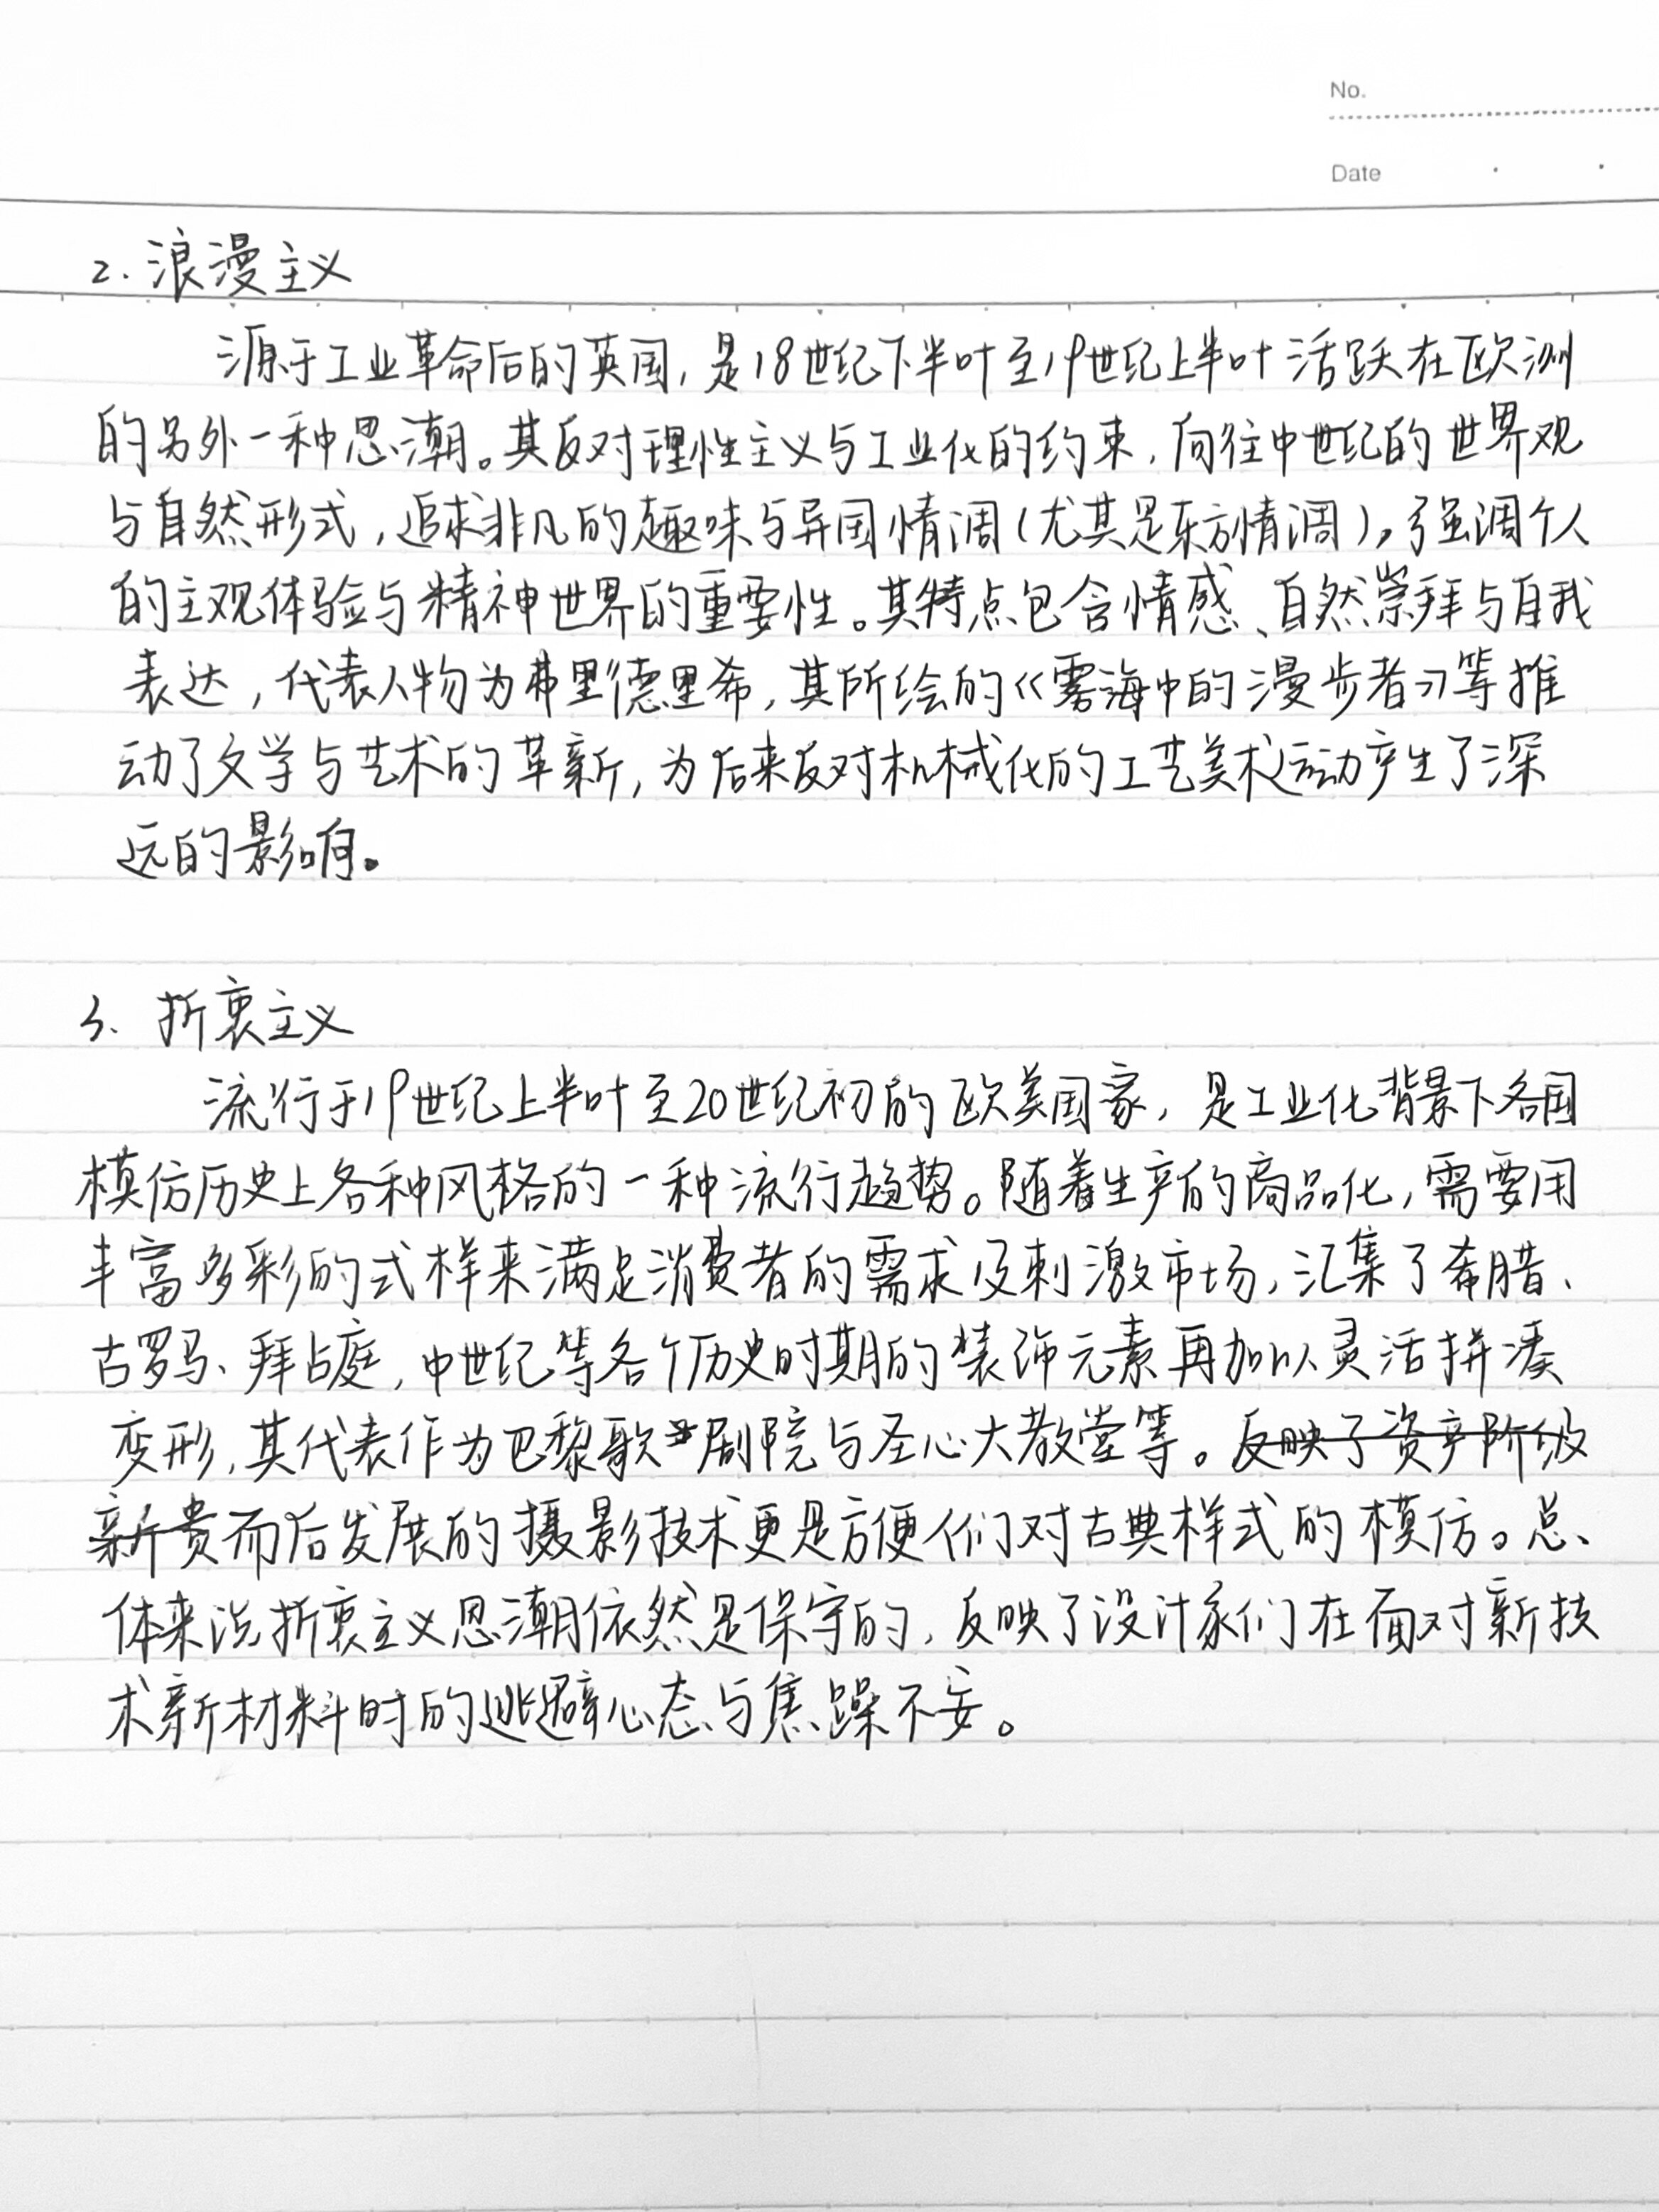 No.
Date
2. 浪漫主义
源于工业革命后的英国，是18世纪下半叶至19世纪上半叶活跃在欧洲
的另外一种思潮。其反对理性主义与工业化的约束，向往中世纪的世界观
与自然形式，追求非凡的趣味与异国情调（尤其是东方情调）。强调个人
的主观体验与精神世界的重要性。其特点包含情感、自然崇拜与自我
表达，代表人物为弗里德里希，其所绘的《雾海中的漫步者》等推
动了文学与艺术的革新，为后来反对机械化的工艺美术运动产生了深
远的影响。
3. 折衷主义
流行于19世纪上半叶至20世纪初的欧美国家，是工业化背景下各国
模仿历史上各种风格的一种流行趋势。随着生产的商品化，需要用
丰富多彩的式样来满足消费者的需求及刺激市场，汇集了希腊、
古罗马、拜占庭，中世纪等各个历史时期的装饰元素再加以灵活拼凑
变形，其代表作为巴黎歌剧院与圣心大教堂等。反映了资产阶级
新贵而后发展的摄影技术更是方便人们对古典样式的模仿。总
体来说折衷主义思潮依然是保守的，反映了设计家们在面对新技
术新材料时的逃避心态与焦躁不安。